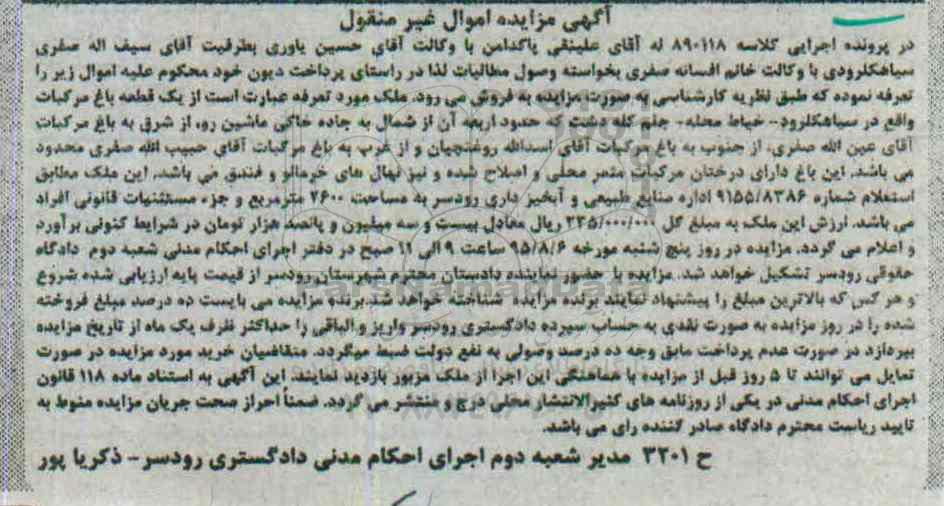 آگهی مزایده اموال غیر منقول
در پرونده اجرایی کلاسه ۸۹۰۱۱۸ له آقای علینقی پاکدامن با وکالت آقای حسین یاوری بطرفیت آقای سیف اله صفری
سیاهکلرودی با وکالت خانم افسانه صفری بخواسته وصول مطالبات لذا در راستای پرداخت دیون خود محکوم علیه اموال زیر را
تعرفه نموده که طبق نظریه کارشناسی به صورت مزایده به فروش می رود. ملک مورد تعرفه عبارت است از یک قطعه باغ مرکبات
واقع در سیاهکلرود- خیاط محله- جلم کله دشت که حدود اربعه آن از شمال به جاده خاکی ماشین رو، از شرق به باغ مرکبات
آقای عین الله صفری، از جنوب به باغ مرکبات آقای اسدالله روغنچیان و از غرب به باغ مرکبات آقای حبیب الله صفری محدود
می باشد. این باغ دارای درختان مرکبات مثمر محلی و اصلاح شده و نیز نهال های خرمالو و فندق می باشد. این ملک مطابق
استعلام شماره ۹۱۵۵/۸۳۸۶ اداره منابع طبیعی و آبخیز داری رودسر به مساحت ۲۶۰۰ مترمربع و جزء مستثنیات قانونی افراد
می باشد. ارزش این ملک به مبلغ کل ۲۳۵/۰۰۰/۰۰۰ ریال معادل بیست و سه میلیون و پانصد هزار تومان در شرایط کنونی برآورد
و اعلام می گردد. مزایده در روز پنج شنبه مورخه ۹۵/۸/۶ ساعت ۹ الی ۱۱ صبح در دفتر اجرای احکام مدنی شعبه دوم دادگاه
حقوقی رودسر تشکیل خواهد شد. مزایده با حضور نماینده دادستان محترم شهرستان رودسر از قیمت پایه ارزیابی شده شروع
و هر کس که بالاترین مبلغ را پیشنهاد نمایند برنده مزایده شناخته خواهد شد.برنده مزایده می بایست ده درصد مبلغ فروخته
شده را در روز مزایده به صورت نقدی به حساب سپرده دادگستری رودسر واریز و الباقی را حداکثر ظرف یک ماه از تاریخ مزایده
بپردازد در صورت عدم پرداخت مابق وجه ده درصد وصولی به نفع دولت ضبط میگردد. متقاضیان خرید مورد مزایده در صورت
تمایل می توانند تا ۵ روز قبل از مزایده با هماهنگی این اجرا از ملک مزبور بازدید نمایند. این آگهی به استناد ماده ۱۱۸ قانون
اجرای احکام مدنی در یکی از روزنامه های کثیرالانتشار محلی درج و منتشر می گردد. ضمناً احراز صحت جریان مزایده منوط به
تایید ریاست محترم دادگاه صادر کننده رای می باشد.
ح ۳۲۰۱ مدیر شعبه دوم اجرای احکام مدنی دادگستری رودسر- ذکریا پور
ParsNamadData